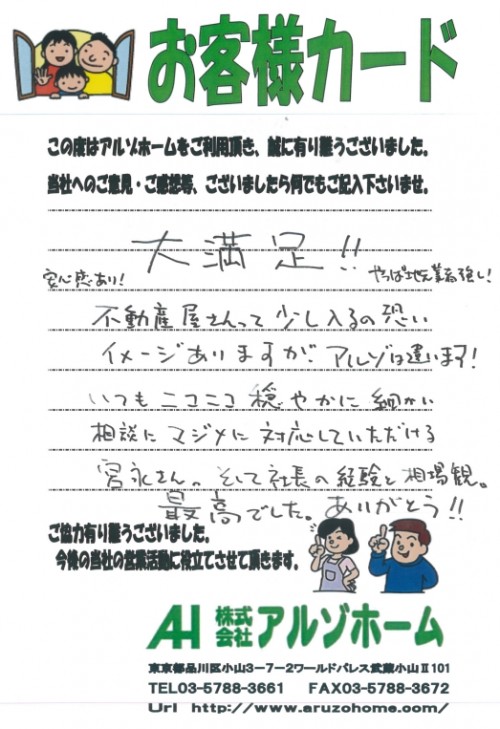 お客様カード
この度はアルゾホームをご利用頂き、誠に有り難うございました。
当社へのご意見・ご感想等、ございましたら何でもご記入下さいませ。
大満足!!
安心感あり!
やっぱ地元業者強し!
不動産屋さんって少し入るの恐い
イメージありますが、アルゾは違います!
いつもニコニコ穏やかに細かい
相談にマジメに対応していただける
宮永さん。そして社長の経験と相場観。
最高でした。ありがとう!!
ご協力有り難うございました。
今後の当社の営業活動に役立てさせて頂きます。
AH 株式会社 アルゾホーム
東京都品川区小山3-7-2ワールドパレス武蔵小山Ⅱ101
TEL03-5788-3661 FAX03-5788-3672
Url http://www.aruzohome.com/